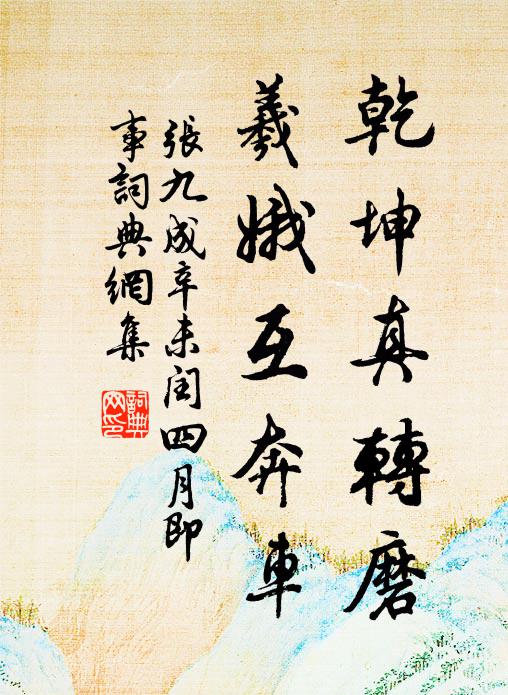 乾坤真轉磨
羲娥互奔車
張九成辛未閏四月即
事詞典網集
詞典
网印